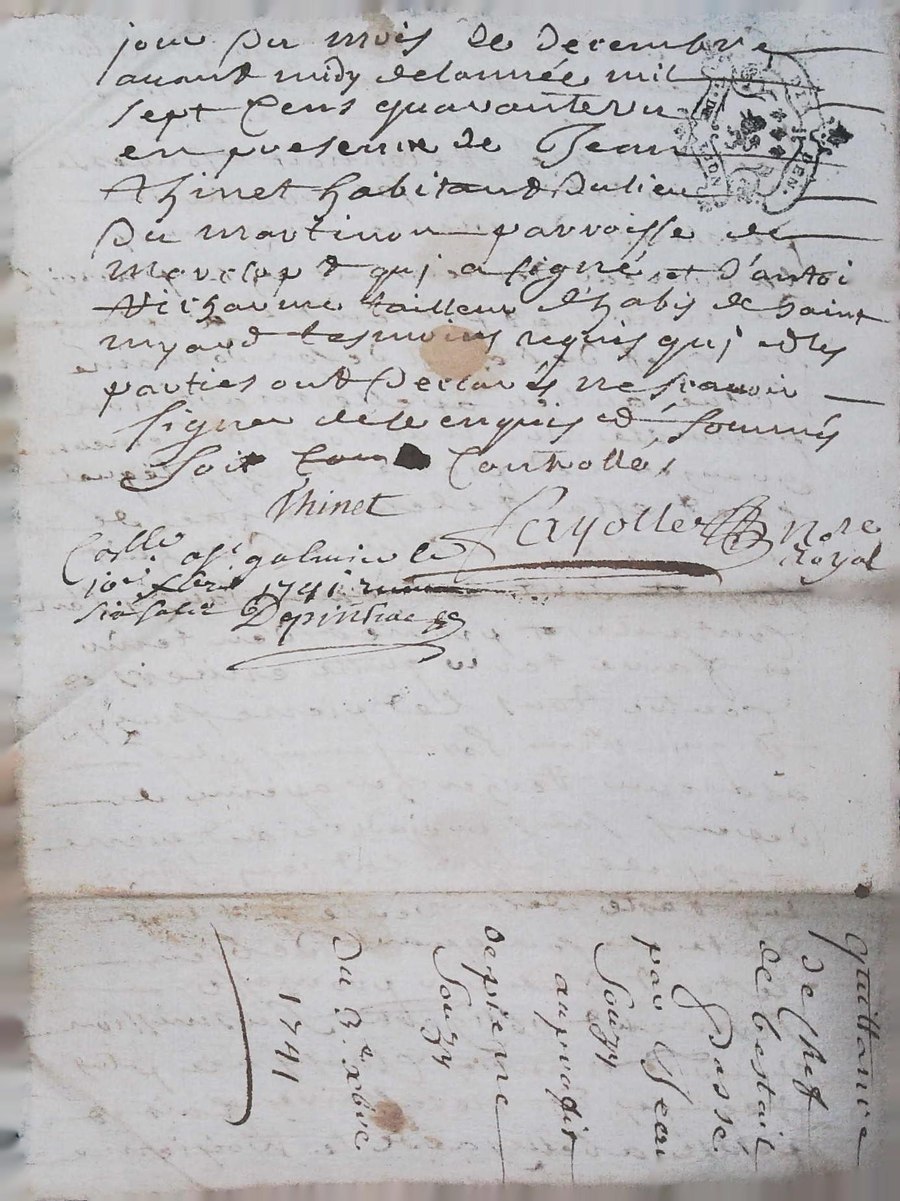 jour du mois de decembre
avant midy delannée mil
sept Cens quarante un
en presence de Jean
thinet habitant dulieu
du martinon parroisse de
marclopt quj a signé et d'antoi
tailleur d'habis de saint
myard tesmoins requis quj et les
parties ont declarés ne scavoir
signer dece enquis et sommés
soit Controllé
thinet
fayolle Nore
Royal
Collé a st galmier le
10e xbre 1741
six sols Depinhac
Quittance
de Chef
de bestail
passé
par Jean
Souzy
au profit
de pierre
Souzy
Du 3e xbre
1741